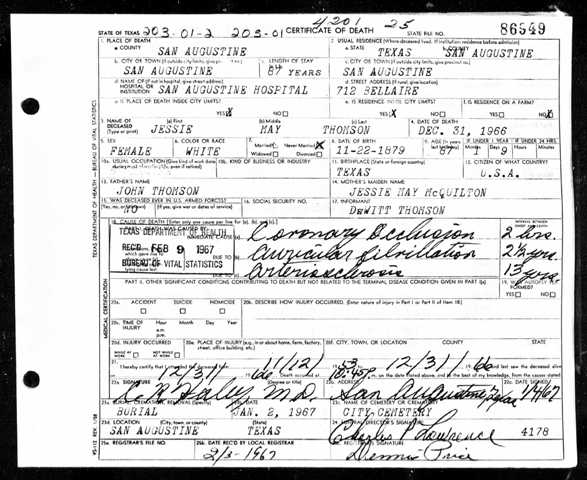 4201 25
STATE OF TEXAS 203.01-2 203-01 CERTIFICATE OF DEATH STATE FILE NO. 86549
1. PLACE OF DEATH 2. USUAL RESIDENCE (Where deceased lived. If institution: residence before admission)
a. COUNTY SAN AUGUSTINE a. STATE TEXAS b. COUNTY SAN AUGUSTINE
b. CITY OR TOWN (If outside city limits, give precinct no.) c. LENGTH OF STAY c. CITY OR TOWN (If outside city limits, give precinct no.)
SAN AUGUSTINE 87 YEARS SAN AUGUSTINE
d. NAME OF (If not in hospital, give street address) HOSPITAL OR INSTITUTION SAN AUGUSTINE HOSPITAL d. STREET ADDRESS 712 BELLAIRE
e. IS PLACE OF DEATH INSIDE CITY LIMITS? e. IS RESIDENCE INSIDE CITY LIMITS? f. IS RESIDENCE ON A FARM?
YES X NO YES X NO YES NO X
3. NAME OF DECEASED (Type or print) (a) First (b) Middle (c) Last 4. DATE OF DEATH
JESSIE MAY THOMSON DEC. 31, 1966
5. SEX 6. COLOR OR RACE 7. Married Never Married X 8. DATE OF BIRTH 9. AGE
FEMALE WHITE Widowed Divorced 11-22-1879 87
10a. USUAL OCCUPATION 10b. KIND OF BUSINESS OR INDUSTRY 11. BIRTHPLACE (State or foreign country) 12. CITIZEN OF WHAT COUNTRY?
TEXAS U.S.A.
13. FATHER'S NAME 14. MOTHER'S MAIDEN NAME
JOHN THOMSON JESSIE MAY McQUILTON
15. WAS DECEASED EVER IN U.S. ARMED FORCES? 16. SOCIAL SECURITY NO. 17. INFORMANT
NO DeWITT THOMSON
18. CAUSE OF DEATH (Enter only one cause per line for (a), (b), and (c).)
TEXAS DEPARTMENT OF HEALTH
Coronary Occlusion 2 hrs.
REC'D FEB 9 1967
Auricular fibrillation 2½ yrs.
BUREAU OF VITAL STATISTICS
Arteriosclerosis 13 yrs.
PART II. OTHER SIGNIFICANT CONDITIONS CONTRIBUTING TO DEATH BUT NOT RELATED TO THE TERMINAL DISEASE CONDITION GIVEN IN PART I(a) 19. WAS AUTOPSY PERFORMED?
YES NO
20a. ACCIDENT SUICIDE HOMICIDE 20b. DESCRIBE HOW INJURY OCCURRED. (Enter nature of injury in Part I or Part II of item 18)
20c. TIME OF INJURY Hour Month Day Year
a.m.
p.m.
20d. INJURY OCCURRED 20e. PLACE OF INJURY (e.g. in or about home, farm, factory, street, office building, etc.) 20f. CITY, TOWN, OR LOCATION COUNTY STATE
WHILE AT WORK NOT WHILE AT WORK
21. I hereby certify that I attended the deceased from 11/12 1953 12/31 1966
12/31 66 10:45P
22a. SIGNATURE (Degree or title) 22b. ADDRESS 22c. DATE SIGNED
M.D. San Augustine, Texas
BURIAL JAN. 2, 1967 23c. NAME OF CEMETERY OR CREMATORY CITY CEMETERY
23d. LOCATION (City, town, or county) (State) 24. FUNERAL DIRECTOR'S SIGNATURE
SAN AUGUSTINE TEXAS Charles Lawrence 4178
25a. REGISTRAR'S FILE NO. 25b. DATE REC'D BY LOCAL REGISTRAR 25c. REGISTRAR'S SIGNATURE
2/3-1967 Dennis Price
TEXAS DEPARTMENT OF HEALTH — BUREAU OF VITAL STATISTICS
MEDICAL CERTIFICATION